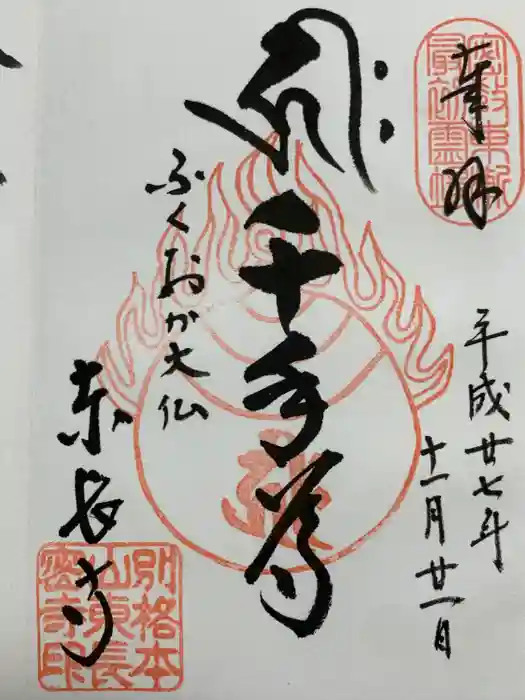 奉拝
密教東漸
最初霊場
平成廿七年
十一月廿一日
千手尊
ふくおか大仏
東長寺
別格本
山東長
密寺印